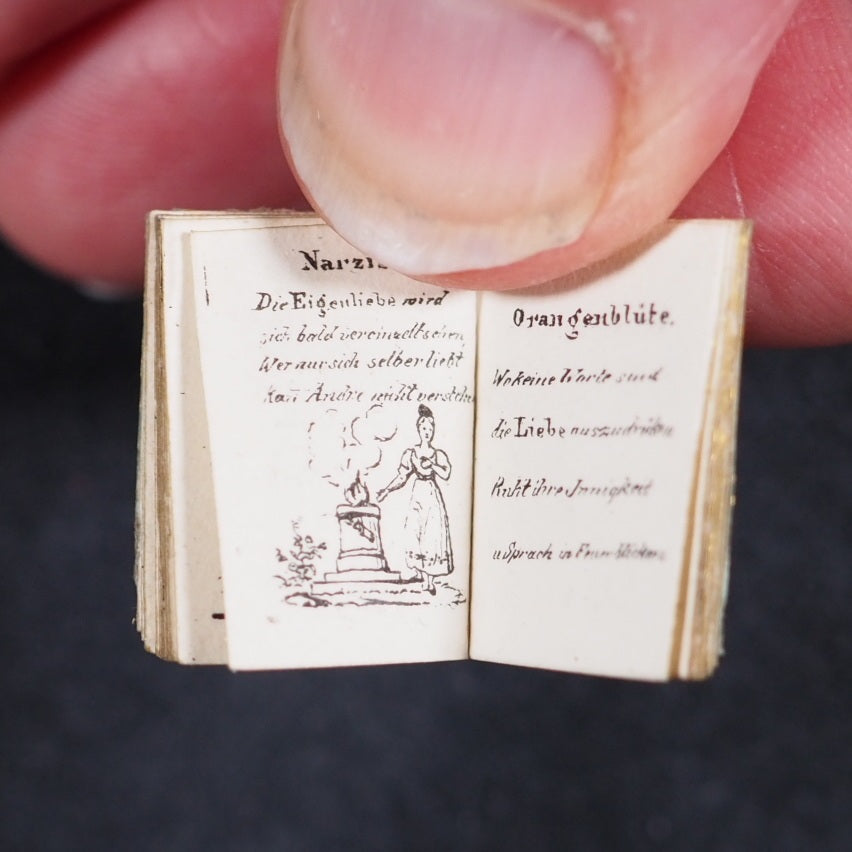 Narzis
Die Eigenliebe wird
sich bald vereinzelt sehen,
Wer nur sich selber liebt
Kan̄ Andre nicht verstehn
Orangenblüte.
Wo keine Worte sind
die Liebe auszudrüken
Ruht ihre Innigkeit
u Sprach in